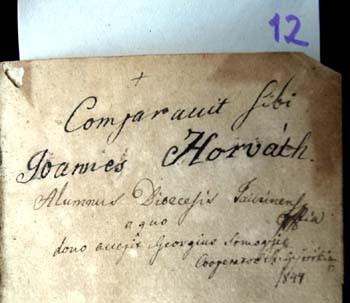 12
Comparavit sibi
Joannes Horváth.
Alumnus Diocesis Jaurinen
a quo
dono accepit Georgius Somogyi
Cooperator
1841